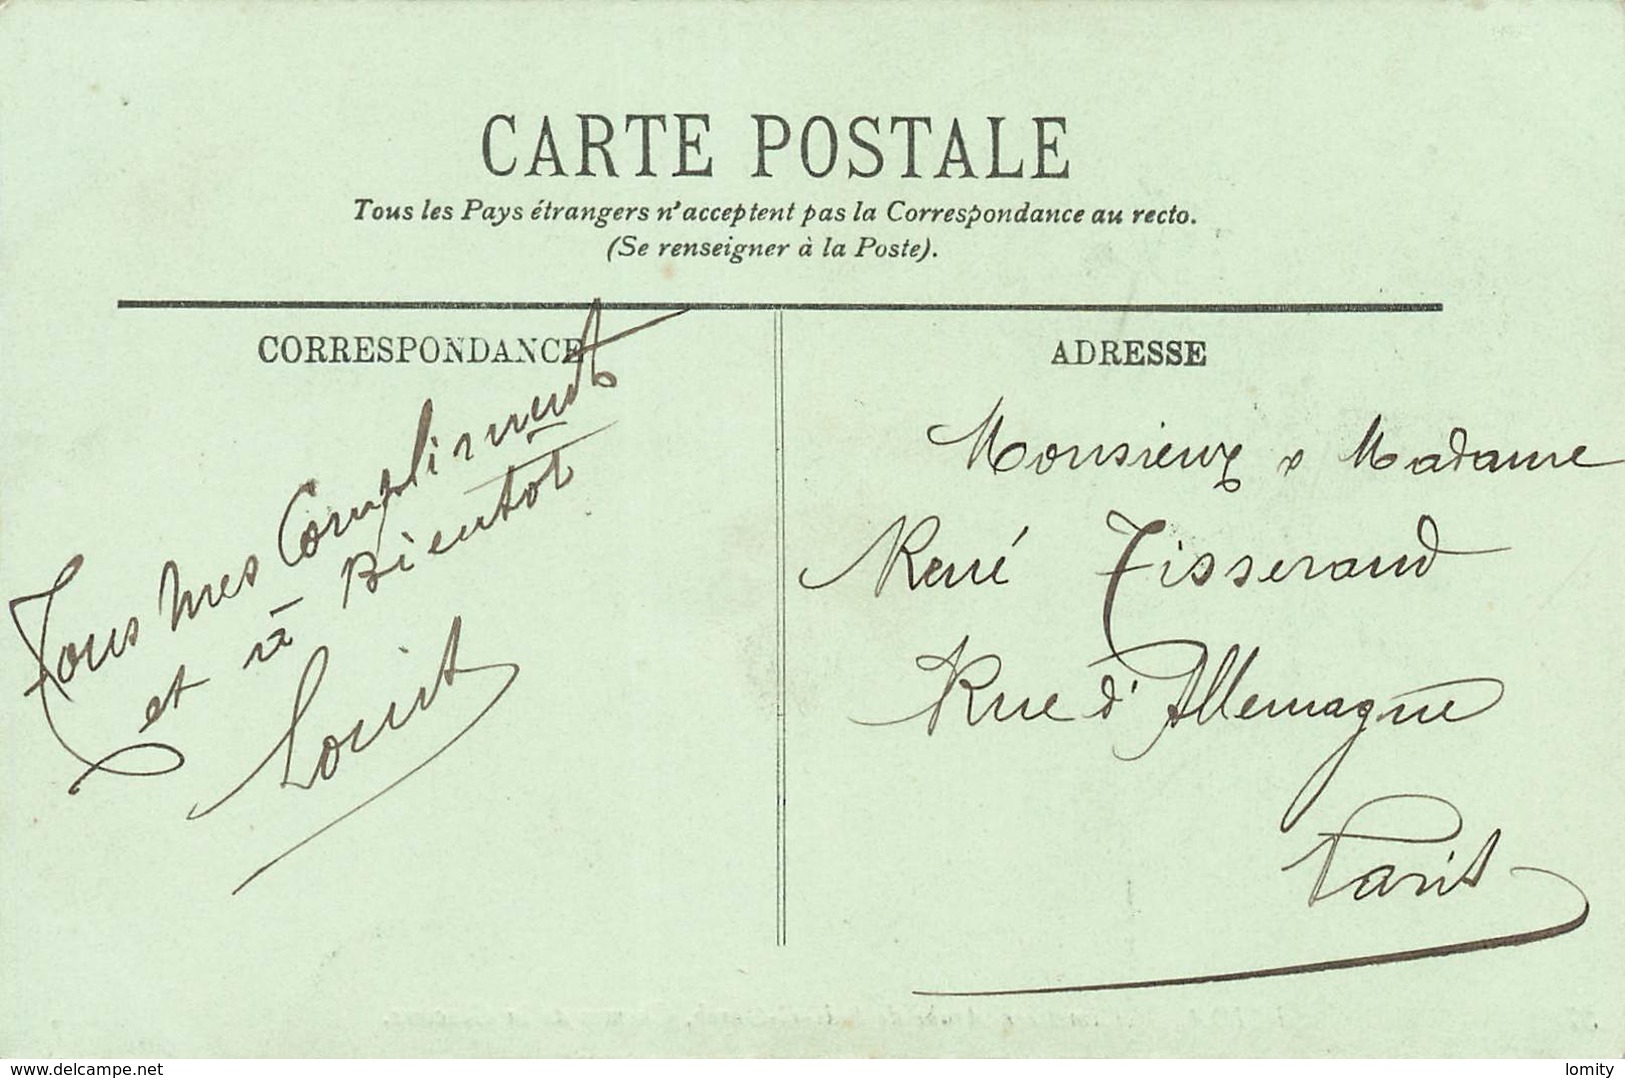 CARTE POSTALE
Tous les Pays étrangers n'acceptent pas la Correspondance au recto.
(Se renseigner à la Poste).
CORRESPONDANCE
Tous mes Compliments
et à Bientot
Louis
ADRESSE
Monsieur & Madame
René Tisserand
Rue d'Allemagne
Paris
delcampe.net
lomity